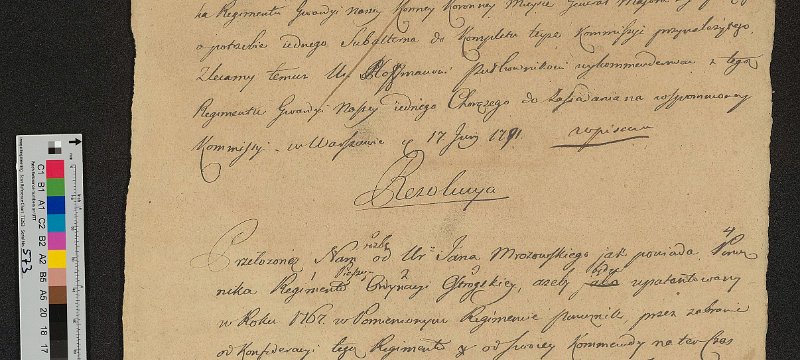 ka Regimentu Gwardyi Naszey Konney Koronney Mieysce General Majora
a potrzebie iednego Subalterna do Kompletu teyze Kommissyi przynależytego.
Zlecamy temuz Ur Hoffmanowi Pułkownikowi wykommenderować z tego
Regimentu Gwardyi Naszey iednego Chorążego do zasiadania na wspomnioney
Kommissyi. w Warszawie d 17 Junij 1791. wpisana
Rezolucya
Przełożono Nam od Ur Jana Mrozowskiego jak powiada Porucz
nika Regimentu Ordynacyi Ostrogskiey, azeby jako upatentowany
w Roku 1767. w Pomienionym Regimencie porucznik, przez zabranie
od Konfederacyi tego Regimentu y od swoiey Kommendy na ten czas